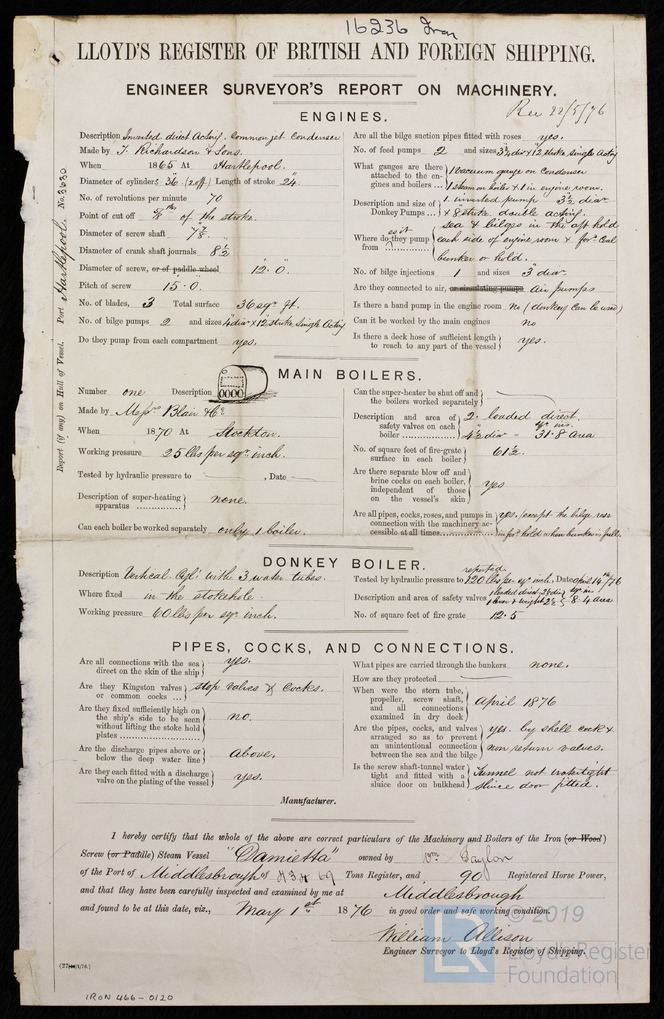 16236 Iron
LLOYD'S REGISTER OF BRITISH AND FOREIGN SHIPPING.
ENGINEER SURVEYOR'S REPORT ON MACHINERY.
Rec 22/5/76
Report (if any) on Hull of Vessel. Port Hartlepool. No. 3630
ENGINES.
Description Inverted direct Acting. Common jet Condenser
Made by T. Richardson & Sons.
When 1865 At Hartlepool.
Diameter of cylinders 36 (2 off) Length of stroke 24.
No. of revolutions per minute 70
Point of cut off of the stroke.
Diameter of screw shaft
Diameter of crank shaft journals 8½
Diameter of screw, or of paddle wheel 12.0.
Pitch of screw 15.0.
No. of blades, 3 Total surface 36 sqr. ft.
No. of bilge pumps 2 and sizes 4" diar & 12" stroke Single Acting
Do they pump from each compartment yes.
Are all the bilge suction pipes fitted with roses yes.
No. of feed pumps 2 and sizes 3½ diar & 12 stroke single acting
What gauges are there attached to the engines and boilers ... 1 vacuum gauge on Condenser
1 steam on boiler & 1 in engine room.
Description and size of Donkey Pumps ... 1. inverted pump 3½ diar
& 8" stroke double acting.
Where do they pump from as it sea & bilges in the aft hold
each side of engine room & for'd Coal
bunker or hold.
No. of bilge injections 1 and sizes 3" diar.
Are they connected to air, or circulating pumps air pumps
Is there a hand pump in the engine room no (donkey can be used)
Can it be worked by the main engines no
Is there a deck hose of sufficient length to reach to any part of the vessel yes.
MAIN BOILERS.
Number one Description
Made by Messrs Blair & Co
When 1870 At Stockton.
Working pressure 25 lbs per sqr. inch.
Tested by hydraulic pressure to , Date
Description of super-heating apparatus none.
Can each boiler be worked separately only 1 boiler.
Can the super-heater be shut off and the boilers worked separately
Description and area of safety valves on each boiler 2. loaded direct.
4½ diar - 31.8 area sqr ins.
No. of square feet of fire-grate surface in each boiler 61½.
Are there separate blow off and brine cocks on each boiler, independent of those on the vessel's skin yes
Are all pipes, cocks, roses, and pumps in connection with the machinery accessible at all times yes, except the bilge rose
in for'd hold when bunker is full.
DONKEY BOILER.
Description Vertical. Cyl! with 3 water tubes.
Where fixed in the stokehole.
Working pressure 60 lbs per sqr inch.
Tested by hydraulic pressure to reported 120 lbs per sqr inch, Date April 14th/76
Description and area of safety valves 1 loaded direct 2½ dia
1 lever & weight 2½ 8.4 area sqr in
No. of square feet of fire grate 12.5
PIPES, COCKS, AND CONNECTIONS.
Are all connections with the sea direct on the skin of the ship yes.
Are they Kingston valves or common cocks ... stop valves & Cocks.
Are they fixed sufficiently high on the ship's side to be seen without lifting the stoke hold plates no.
Are the discharge pipes above or below the deep water line above.
Are they each fitted with a discharge valve on the plating of the vessel yes.
What pipes are carried through the bunkers none.
How are they protected
When were the stern tube, propeller, screw shaft, and all connections examined in dry dock April 1876
Are the pipes, cocks, and valves arranged so as to prevent an unintentional connection between the sea and the bilge yes. by shell cock &
non return valves.
Is the screw shaft-tunnel water tight and fitted with a sluice door on bulkhead Tunnel not watertight
Sluice door fitted.
Manufacturer.
I hereby certify that the whole of the above are correct particulars of the Machinery and Boilers of the Iron (or Wood)
Screw (or Paddle) Steam Vessel "Damietta" owned by Wm Taylor
of the Port of Middlesbrough Tons Register, and 90 Registered Horse Power,
and that they have been carefully inspected and examined by me at Middlesbrough
and found to be at this date, viz., May 1st 1876 in good order and safe working condition.
William Allison
Engineer Surveyor to Lloyd's Register of Shipping.
IRON 466-0120
LR
© 2019
Lloyd's Register
Foundation